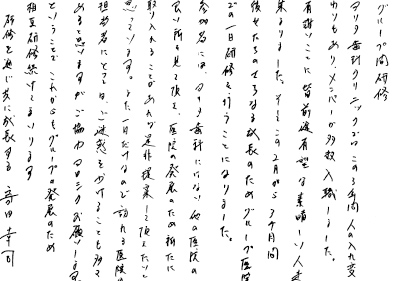 グループ間研修
アリタ歯科クリニックでこの3年間、人の入れ変
わりもありメンバーが多数入職しました。
有難いことに皆前途有望な素晴しい人
来なりました。そしてこの2月から3ヶ月間
彼女たちのさらなる成長のためグループ医院
での一日研修を行うことになりました。
参加者には、アリタ歯科にはない他の医院の
良い所を見て頂き、医院の発展のため新たに
取り入れることがあれば是非提案して頂きたいと
思っています。また一日だけなので訪れる医院の
担当者にとってはご迷惑をかけることも多々
あると思いますがご協力ヨロシクお願いします
ということでこれからもグループの発展のため
相互研修続けてまいります
研修を通じ共に成長する 幸司